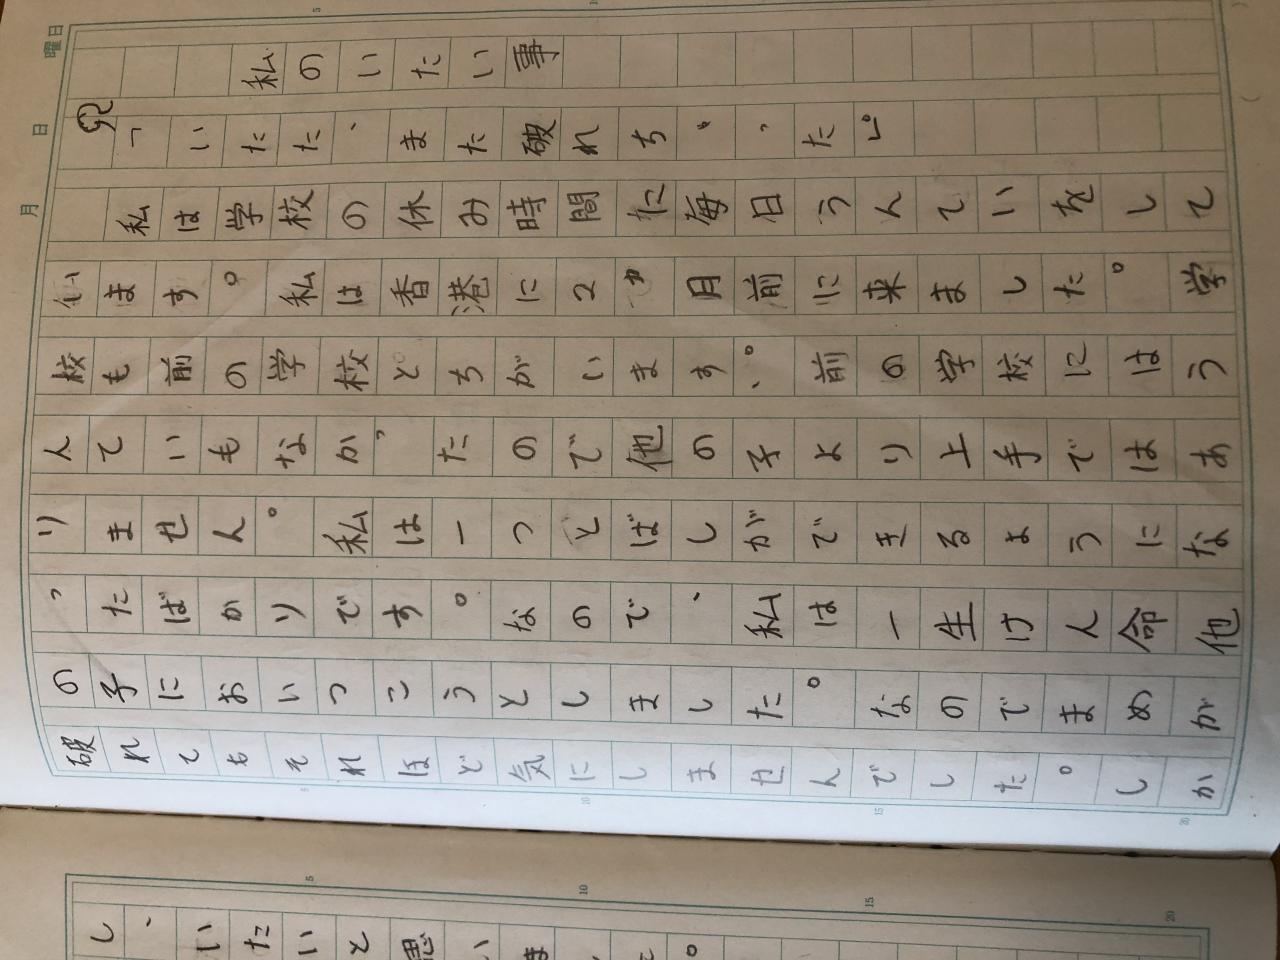 月 日 曜日
私のいたい事
「いたた、また破れちゃった」
私は学校の休み時間に毎日うんていをして
います。私は香港に2か月前に来ました。学
校も前の学校とちがいます。前の学校にはう
んていもなかったので他の子より上手ではあ
りません。私は一つとばしができるようにな
ったばかりです。なので、私は一生けん命他
の子においつこうとしました。なのでまめが
破れてもそれほど気にしませんでした。しか
5
10
15
20
し、いたいと思いま